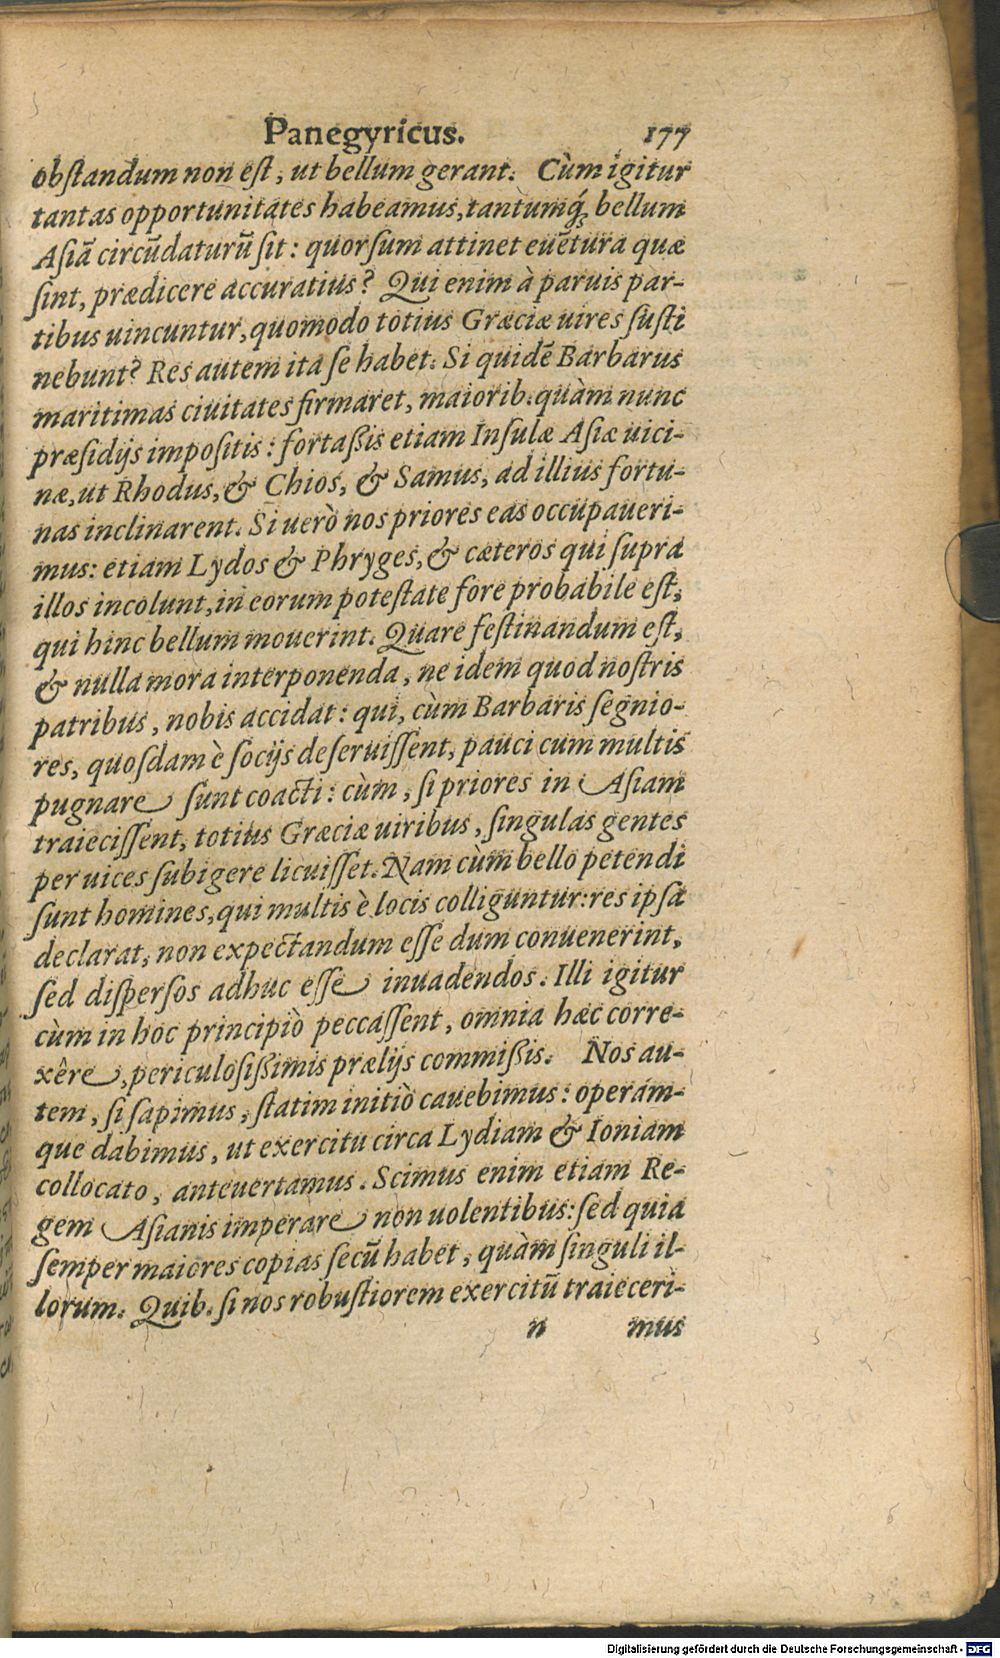 Panegyricus. 177
obstandum non est, ut bellum gerant. Cùm igitur
tantas opportunitates habeamus, tantumq́; bellum
Asiā circūdaturū sit: quorsum attinet euētura quæ
sint, prædicere accuratius? Qui enim à paruis par-
tibus uincuntur, quomodo totius Græciæ uires susti
nebunt? Res autem ita se habet. Si quidē Barbarus
maritimas ciuitates firmaret, maiorib. quàm nunc
præsidijs impositis: fortaßis etiam Insulæ Asiæ uici-
næ, ut Rhodus, & Chios, & Samus, ad illius fortu-
nas inclinarent. Si uerò nos priores eas occupaueri-
mus: etiam Lydos & Phryges, & cæteros qui supra
illos incolunt, in eorum potestate fore probabile est,
qui hinc bellum mouerint. Quare festinandum est,
& nulla mora interponenda, ne idem quod nostris
patribus, nobis accidat: qui, cùm Barbaris segnio-
res, quosdam è socijs deseruissent, pauci cum multis
pugnare sunt coacti: cùm, si priores in Asiam
traiecissent, totius Græciæ uiribus, singulas gentes
per uices subigere licuisset. Nam cùm bello petendi
sunt homines, qui multis è locis colliguntur: res ipsa
declarat, non expectandum esse dum conuenerint,
sed dispersos adhuc esse inuadendos. Illi igitur
cùm in hoc principiò peccassent, omnia hæc corre-
xêre, periculosißimis prælijs commißis. Nos au-
tem, si sapimus, statim initiò cauebimus: operám-
que dabimus, ut exercitu circa Lydiam & Ioniam
collocato, anteuertamus. Scimus enim etiam Re-
gem Asianis imperare non uolentibus: sed quia
semper maiores copias secū habet, quàm singuli il-
lorum. Quib. si nos robustiorem exercitū traieceri-
n mus
Digitalisierung gefördert durch die Deutsche Forschungsgemeinschaft - DFG